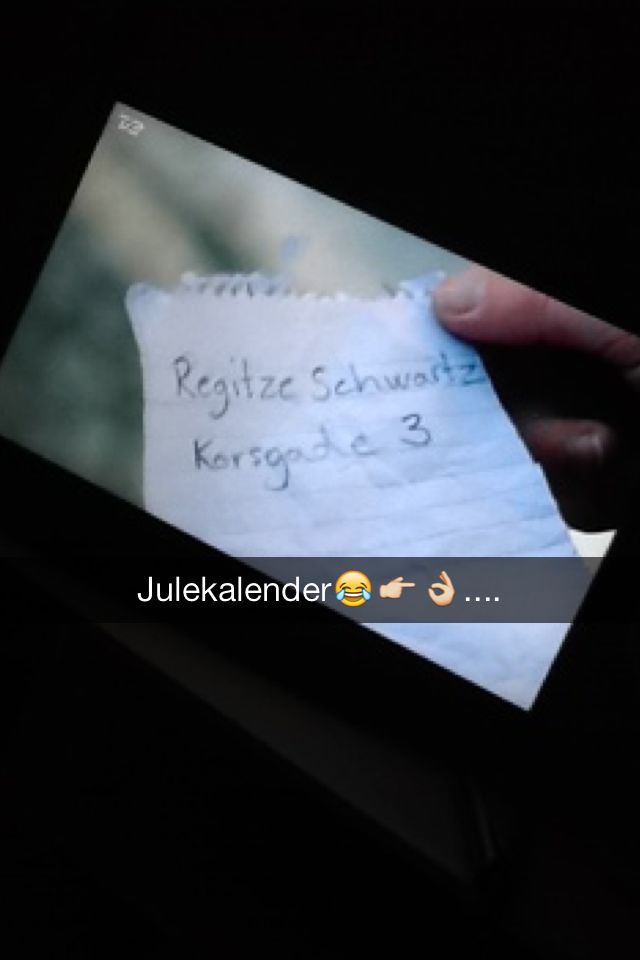 Regitze Schwartz
Korsgade 3
Julekalender😂👉👌....